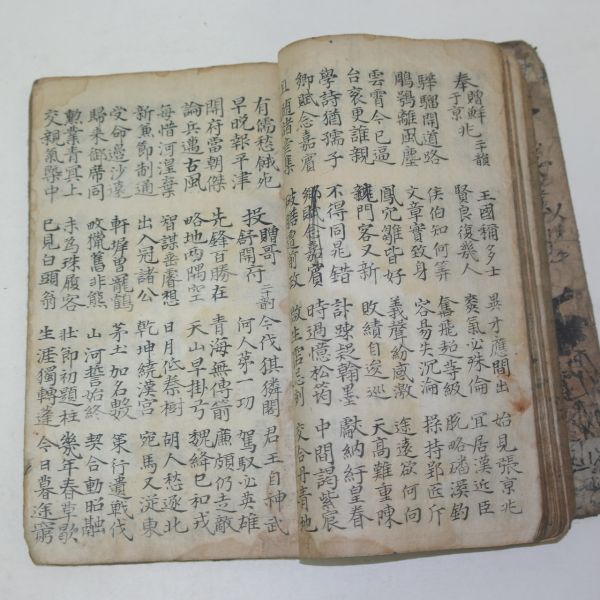 奉贈鮮于京兆二十韻
王國稱多士
賢良復幾人
異才應間出
爽氣必殊倫
始見張京兆
宜居漢近臣
驊騮開道路
鵰鶚離風塵
侯伯知何等
文章實致身
奮飛超等級
容易失沉淪
脫略磻溪釣
操持郢匠斤
雲霄今已逼
台袞更誰親
鳳穴雛皆好
龍門客又新
義聲紛感激
敗績自逡巡
途遠欲何向
天高難重陳
學詩猶孺子
鄉賦念嘉賓
不得同晁錯
計疎疑翰墨
時過憶松筠
獻納紆皇眷
中間謁紫宸
且隨諸彥集
交合丹青地
有儒愁餓死
早晚報平津
投贈哥舒開府二十韵
今伐猉獜閣
何人第一功
君王自神武
駕馭必英雄
開府當朝傑
論兵邁古風
先鋒百勝在
略地兩隅空
青海無傳箭
天山早掛弓
廉頗仍走敵
魏絳已和戎
每惜河湟棄
新兼節制通
智謀垂睿想
出入冠諸公
日月低秦樹
乾坤繞漢宮
胡人愁逐北
宛馬又從東
受命邊沙遠
歸來御席同
軒墀曾寵鶴
畋獵舊非熊
茅土加名數
山河誓始終
策行遺戰伐
契合動昭融
勳業青冥上
交親氣槩中
未為珠履客
已見白頭翁
壯節初題柱
生涯獨轉蓬
幾年春草歇
今日暮途窮